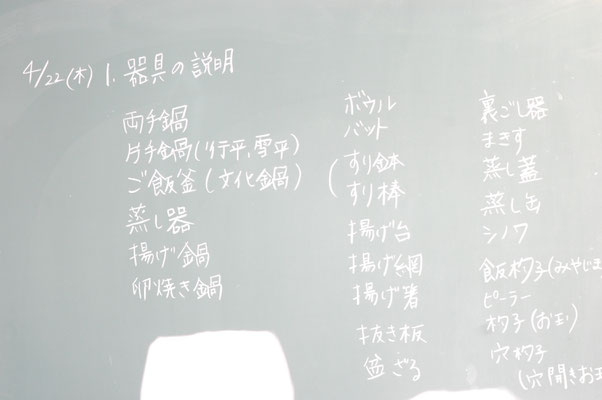 4/22(木) 1. 器具の説明
両手鍋
片手鍋(行平,雪平)
ご飯釜(文化鍋)
蒸し器
揚げ鍋
卵焼き鍋
ボウル
バット
すり鉢
すり棒
揚げ台
揚げ網
揚げ箸
抜き板
盆ざる
裏ごし器
まきす
蒸し蓋
蒸し缶
シノワ
飯杓子(みやじま
ピーラー
杓子(お玉)
穴杓子
(穴開きお玉